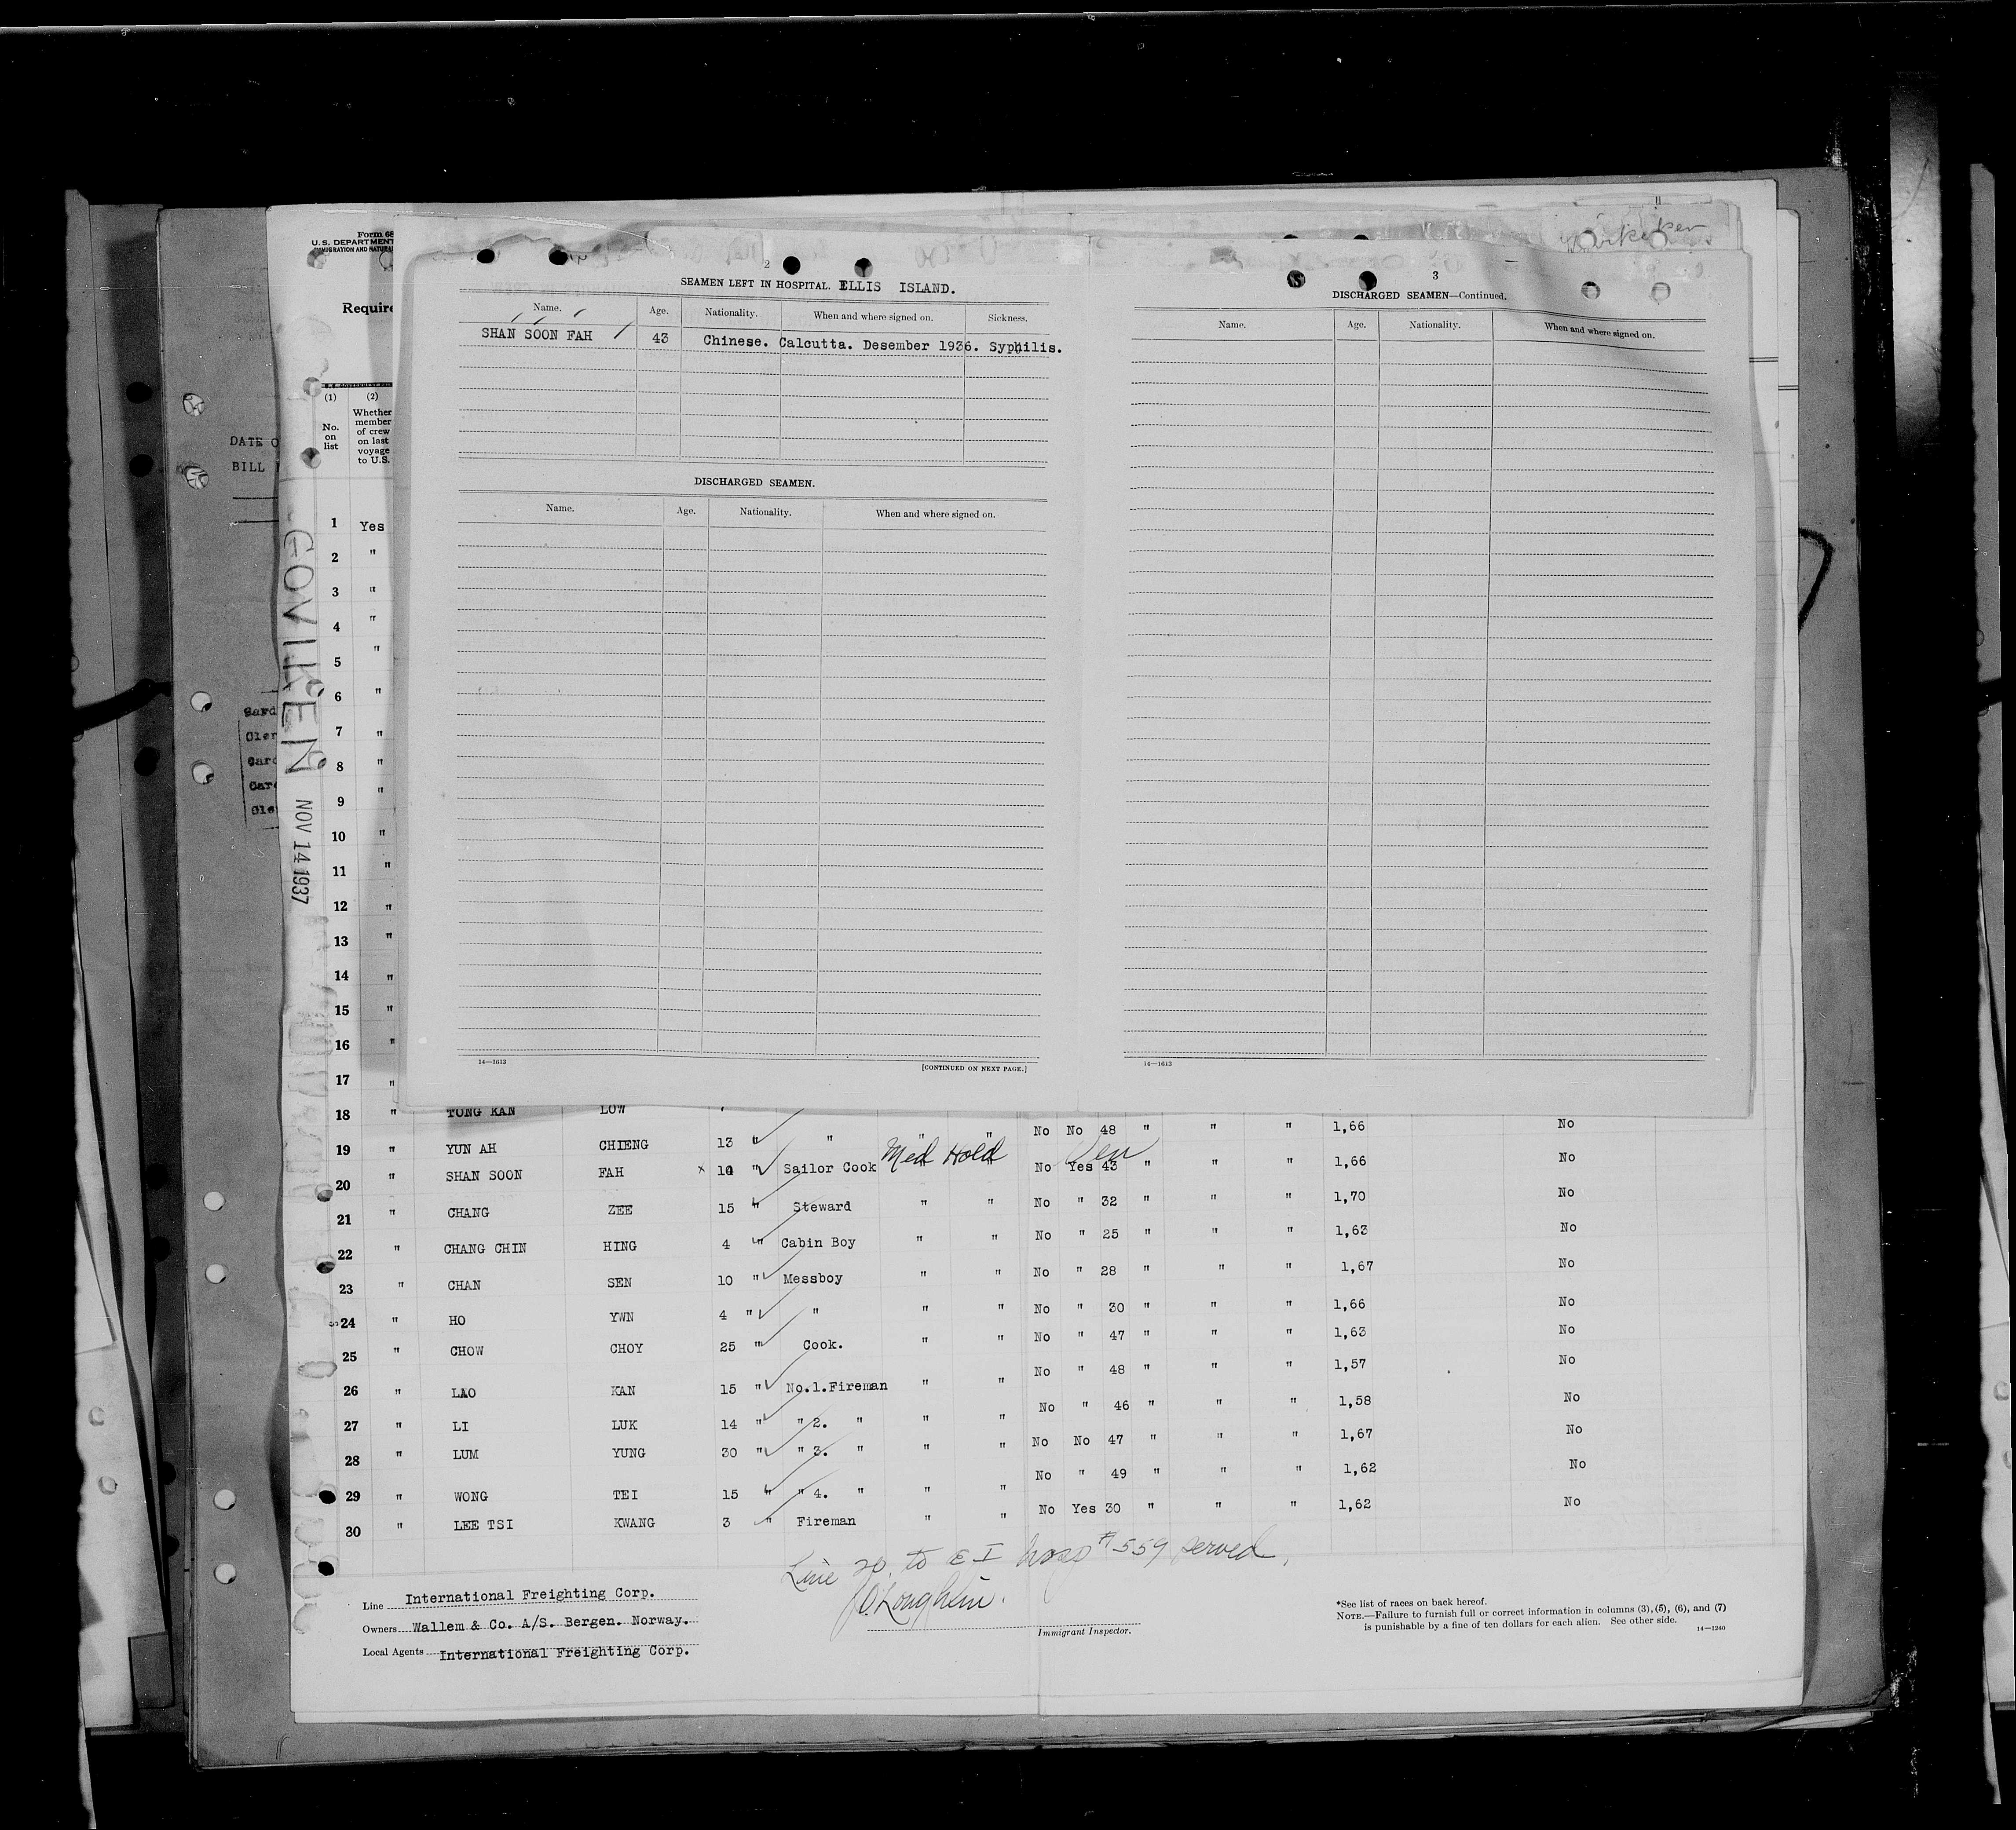 Form 68
U. S. DEPARTMENT
IMMIGRATION AND NATURAL
Require
(1) (2)
No. on list
Whether member of crew on last voyage to U.S.
DATE O
BILL
GOVIKEN
NOV 14 1937
2
SEAMEN LEFT IN HOSPITAL. ELLIS ISLAND.
Name. Age. Nationality. When and where signed on. Sickness.
SHAN SOON FAH 43 Chinese. Calcutta. Desember 1936. Syphilis.
DISCHARGED SEAMEN.
Name. Age. Nationality. When and where signed on.
14—1613
[CONTINUED ON NEXT PAGE.]
3
DISCHARGED SEAMEN—Continued.
Name. Age. Nationality. When and where signed on.
14—1613
1 Yes
2 "
3 "
4 "
5 "
6 "
7 "
8 "
9 "
10 "
11 "
12 "
13 "
14 "
15 "
16 "
17 "
18 " TONG KAN LOW No No 48 " " " 1,66 No
19 " YUN AH CHIENG 13 " " " "
Med Hold
20 " SHAN SOON FAH x 10 " Sailor Cook " No Yes 43 " " " 1,66 No
21 " CHANG ZEE 15 " Steward " " No " 32 " " " 1,70 No
22 " CHANG CHIN HING 4 " Cabin Boy " " No " 25 " " " 1,63 No
23 " CHAN SEN 10 " Messboy " " No " 28 " " " 1,67 No
24 " HO YWN 4 " " " " No " 30 " " " 1,66 No
25 " CHOW CHOY 25 " Cook. " " No " 47 " " " 1,63 No
26 " LAO KAN 15 " No.1.Fireman " " No " 48 " " " 1,57 No
27 " LI LUK 14 " " 2. " " " No " 46 " " " 1,58 No
28 " LUM YUNG 30 " " 3. " " " No No 47 " " " 1,67 No
29 " WONG TEI 15 " " 4. " " " No " 49 " " " 1,62 No
30 " LEE TSI KWANG 3 " Fireman " " No Yes 30 " " " 1,62 No
Line 20. to E I hosp #559 served.
O'Loughlin.
Immigrant Inspector.
Line International Freighting Corp.
Owners Wallem & Co. A/S. Bergen. Norway.
Local Agents International Freighting Corp.
*See list of races on back hereof.
NOTE.—Failure to furnish full or correct information in columns (3), (5), (6), and (7)
is punishable by a fine of ten dollars for each alien. See other side.
14—1240